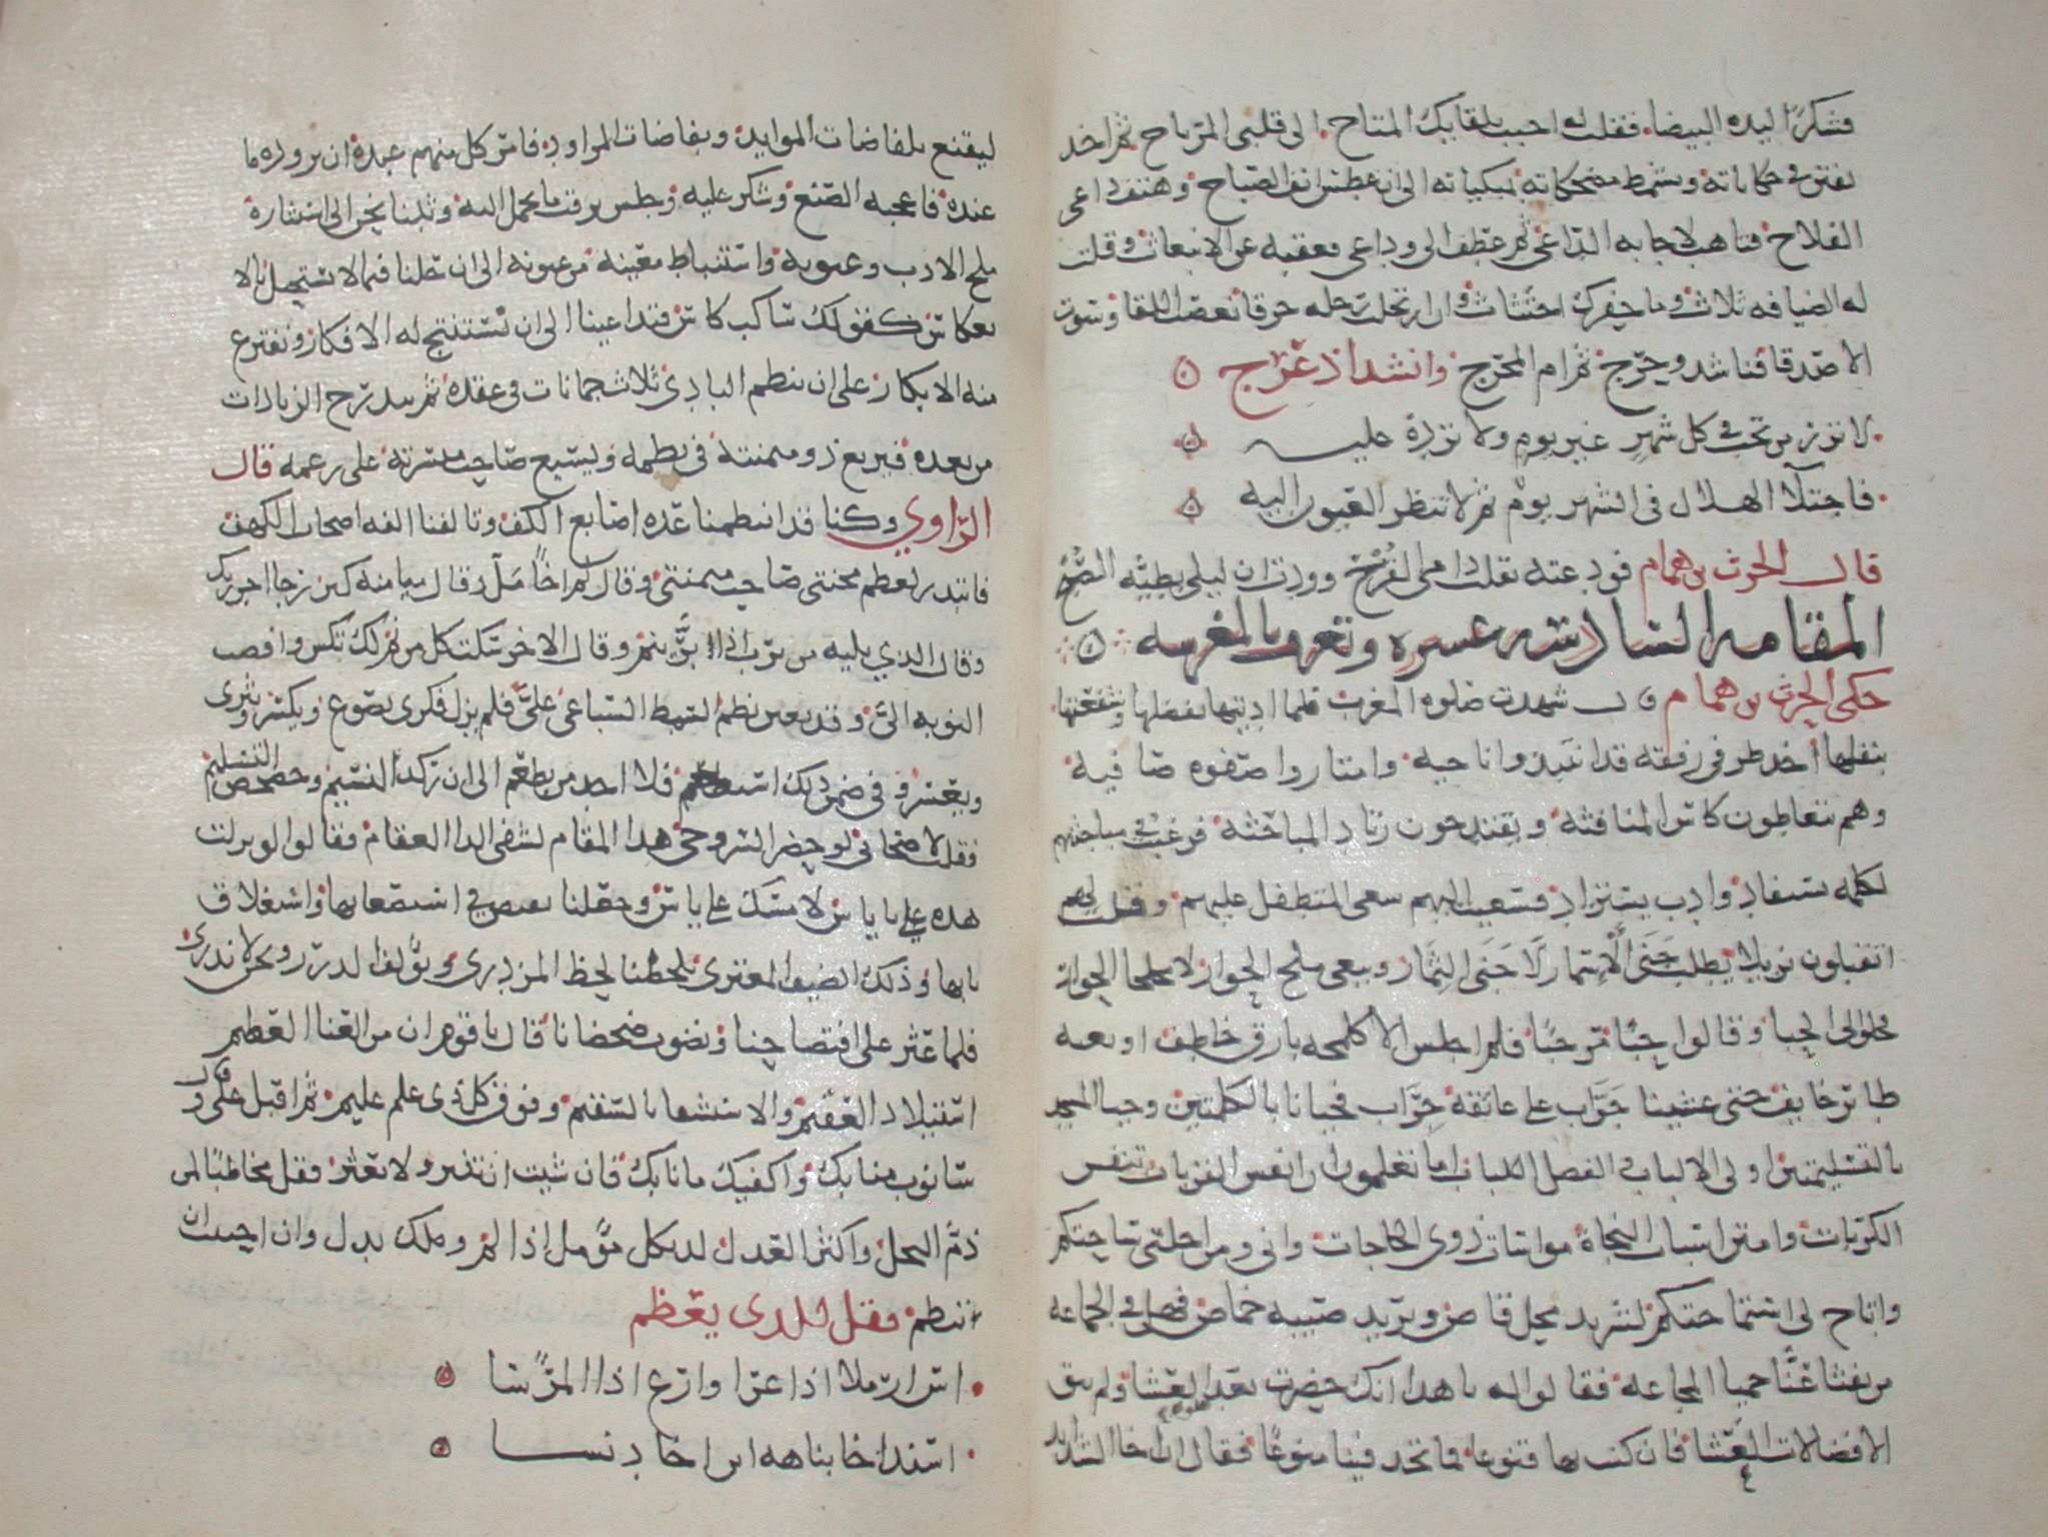 فشكرًا ليده البيضا. فقلت له احبب بلقايك المتاح. الى قلبي المرتاح ثم اخد
يفتن في حكاياته ويشمط مضحكاته بمبكياته الى ان عطس انف الصباح وهتف داعى
الفلاح فتاهب لاجابه الداعي ثم عطف الى وداعي فعقته عن الانبعاث وقلت
له الضيافه ثلاث
الا صدقا فناشد وحرج ثم ام المخرج وانشد اذ عرج
لا تزر من تحب في كل شهر غير يوم ولا تزده عليه
فاجتلا الهلال في الشهر يوم ثم لا تنظر العيون اليه
قال الحرث بن همام فودعته بقلب دامى القرح ووددت ان ليلى بطيه الصبح
المقامه السادسه عشره وتعرف بالمغربيه
حكى الحرث بن همام قال شهدت صلوه المغرب فلما اديتها بفضلها وشفعتها
بنفلها اخد طرفي رفقه قد انتبدوا ناحيه وامتازوا صفوه صافيه
وهم يتعاطون كاس المنافثه ويقتدحون زناد المباحثه فرغبت في مباحثتهم
لكلمه تستفاد وادب يستزاد فسعيت اليهم سعى المتطفل عليهم وقلت لهم
اتقبلون نزيلا يطلب جنى الاسمار لا جنى الثمار ويبغي ملح الحوار لا ملحا الحوار
فحلوا لى الحبا وقالوا مرحبًا فلم اجلس الا كلمحه بارق خاطف او نغبه
طاير خايف حتى غشينا جواب على عاتقه جراب فحيانا بالكلمتين وحيا المسجد
بالتسليمتين اولى الالباب والفضل اللباب اما تعلمون ان انفس القربات تنفيس
الكربات وامتن اسباب النجاة مواسات ذوى الحاجات وانى ومن احلنى ساحتكم
واتاح لى استماحتكم لشريد محل قاص وبريد صبيه خماص فهل في الجماعه
من يفثا عنا حميا المجاعه فقالوا له يا هدا انك حضرت بعد العشا ولم يبق
الا فضالات العشا فان كنت بها قنوعا فما تجد فينا منوعًا فقال ان اخا الشدايد
ليقنع بلفاضات الموايد ونفاضات المزاود فامر كل منهم عبده ان يزوده ما
عنده فاعجبه الصنع وشكر عليه وجلس يرقب ما يحمل اليه وثبنا نحن الى استثاره
ملح الادب وعيونه واستنباط معينه من عيونه الى ان جلنا فيما لا يستحيل بالا
نعكاس كقولك ساكب كاس فتداعينا الى ان نستنتج له الافكار ونفترع
منه الابكار على ان ينظم البادي ثلاث جمانات في عقده ثم يتدرج الزيادات
من بعده فيربع ذو ميمنته في نظمه ويسبع صاحب ميسرته على رغمه قال
الراوي وكنا قد انتظمنا عده اصابع الكف وتالفنا الفه اصحاب الكهف
فابتدر لعظم محنتى صاحب ميمنتي وقال لم اخًا مل وقال ميامنه كبر رجا اجر ربك
وقال الذي يليه من يرب اذا بر ينم وقال الاخر سكت كل من نم لك تكس وافضت
النوبه الى وقد تعين نظم السمط السباعي على فلم يزل فكرى يصوغ ويكسر ويثرى
ويعسر وفي ضمن ذلك استطعم فلا اجد من يطعم الى ان ركد النسيم وحصحص التسليم
فقلت لاصحابي لو حضر السروجي هدا المقام لشفى الدا العقام فقالوا لو نزلت
هده على اياس لامسك على ياس وجعلنا نفيض في استصعابها واستغلاق
بابها وذلك الضيف المعترى يلحظنا لحظ المزدرى ويولف الدرر ونحن لا ندرى
فلما عثر على افتضاحنا ونضوب ضحضاحنا قال يا قوم ان من العنا العظيم
استيلاد العقيم والاستشفا بالسقيم وفوق كل ذى علم عليم ثم اقبل علي وقال
سانوب منابك واكفيك ما نابك فان شيت ان تنثر ولا تعثر فقل مخاطبًا لمن
ذم البخل واكثر العدل لد بكل مومل اذا لم وملك بدل وان احببت ان
تنظم فقل للدى يعظم
اس ارملا اذا عرا وارع اذا المر اسا
اسند اخا نباهه ابن اخا دنسا